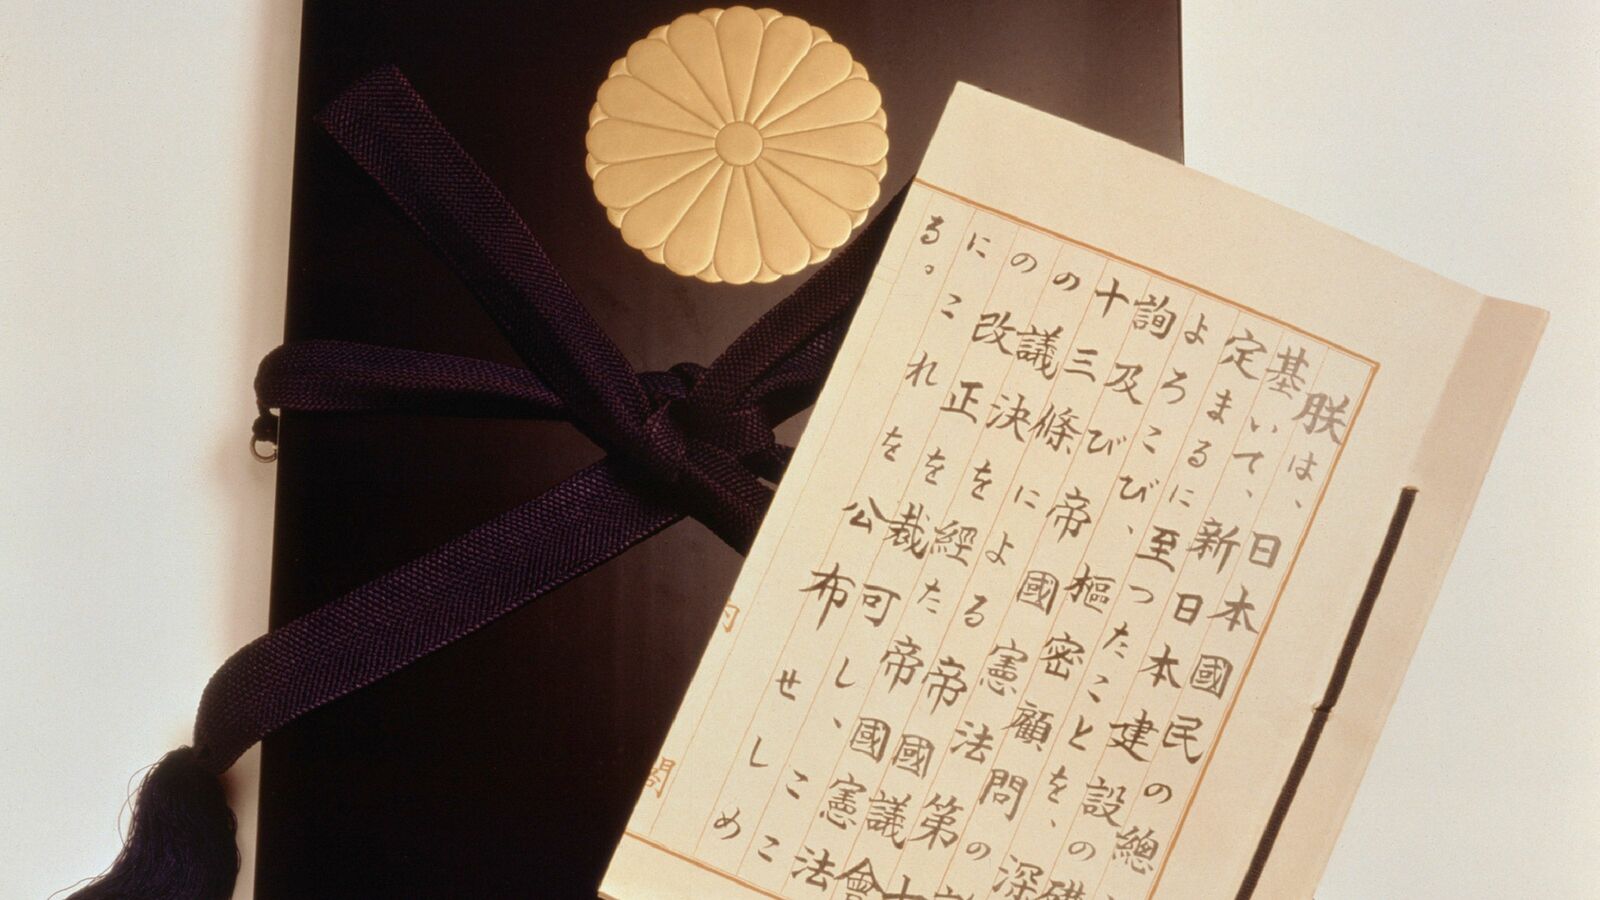 朕は、日本國民の總
基いて、新日本建設の礎
定まるに至つたことを、深
よろこび、樞密顧問の
詢及び帝國憲法第
十三條による帝國議會
の議決を經た帝國憲法
の改正を裁可し、ここ
にこれを公布せしめ
る。